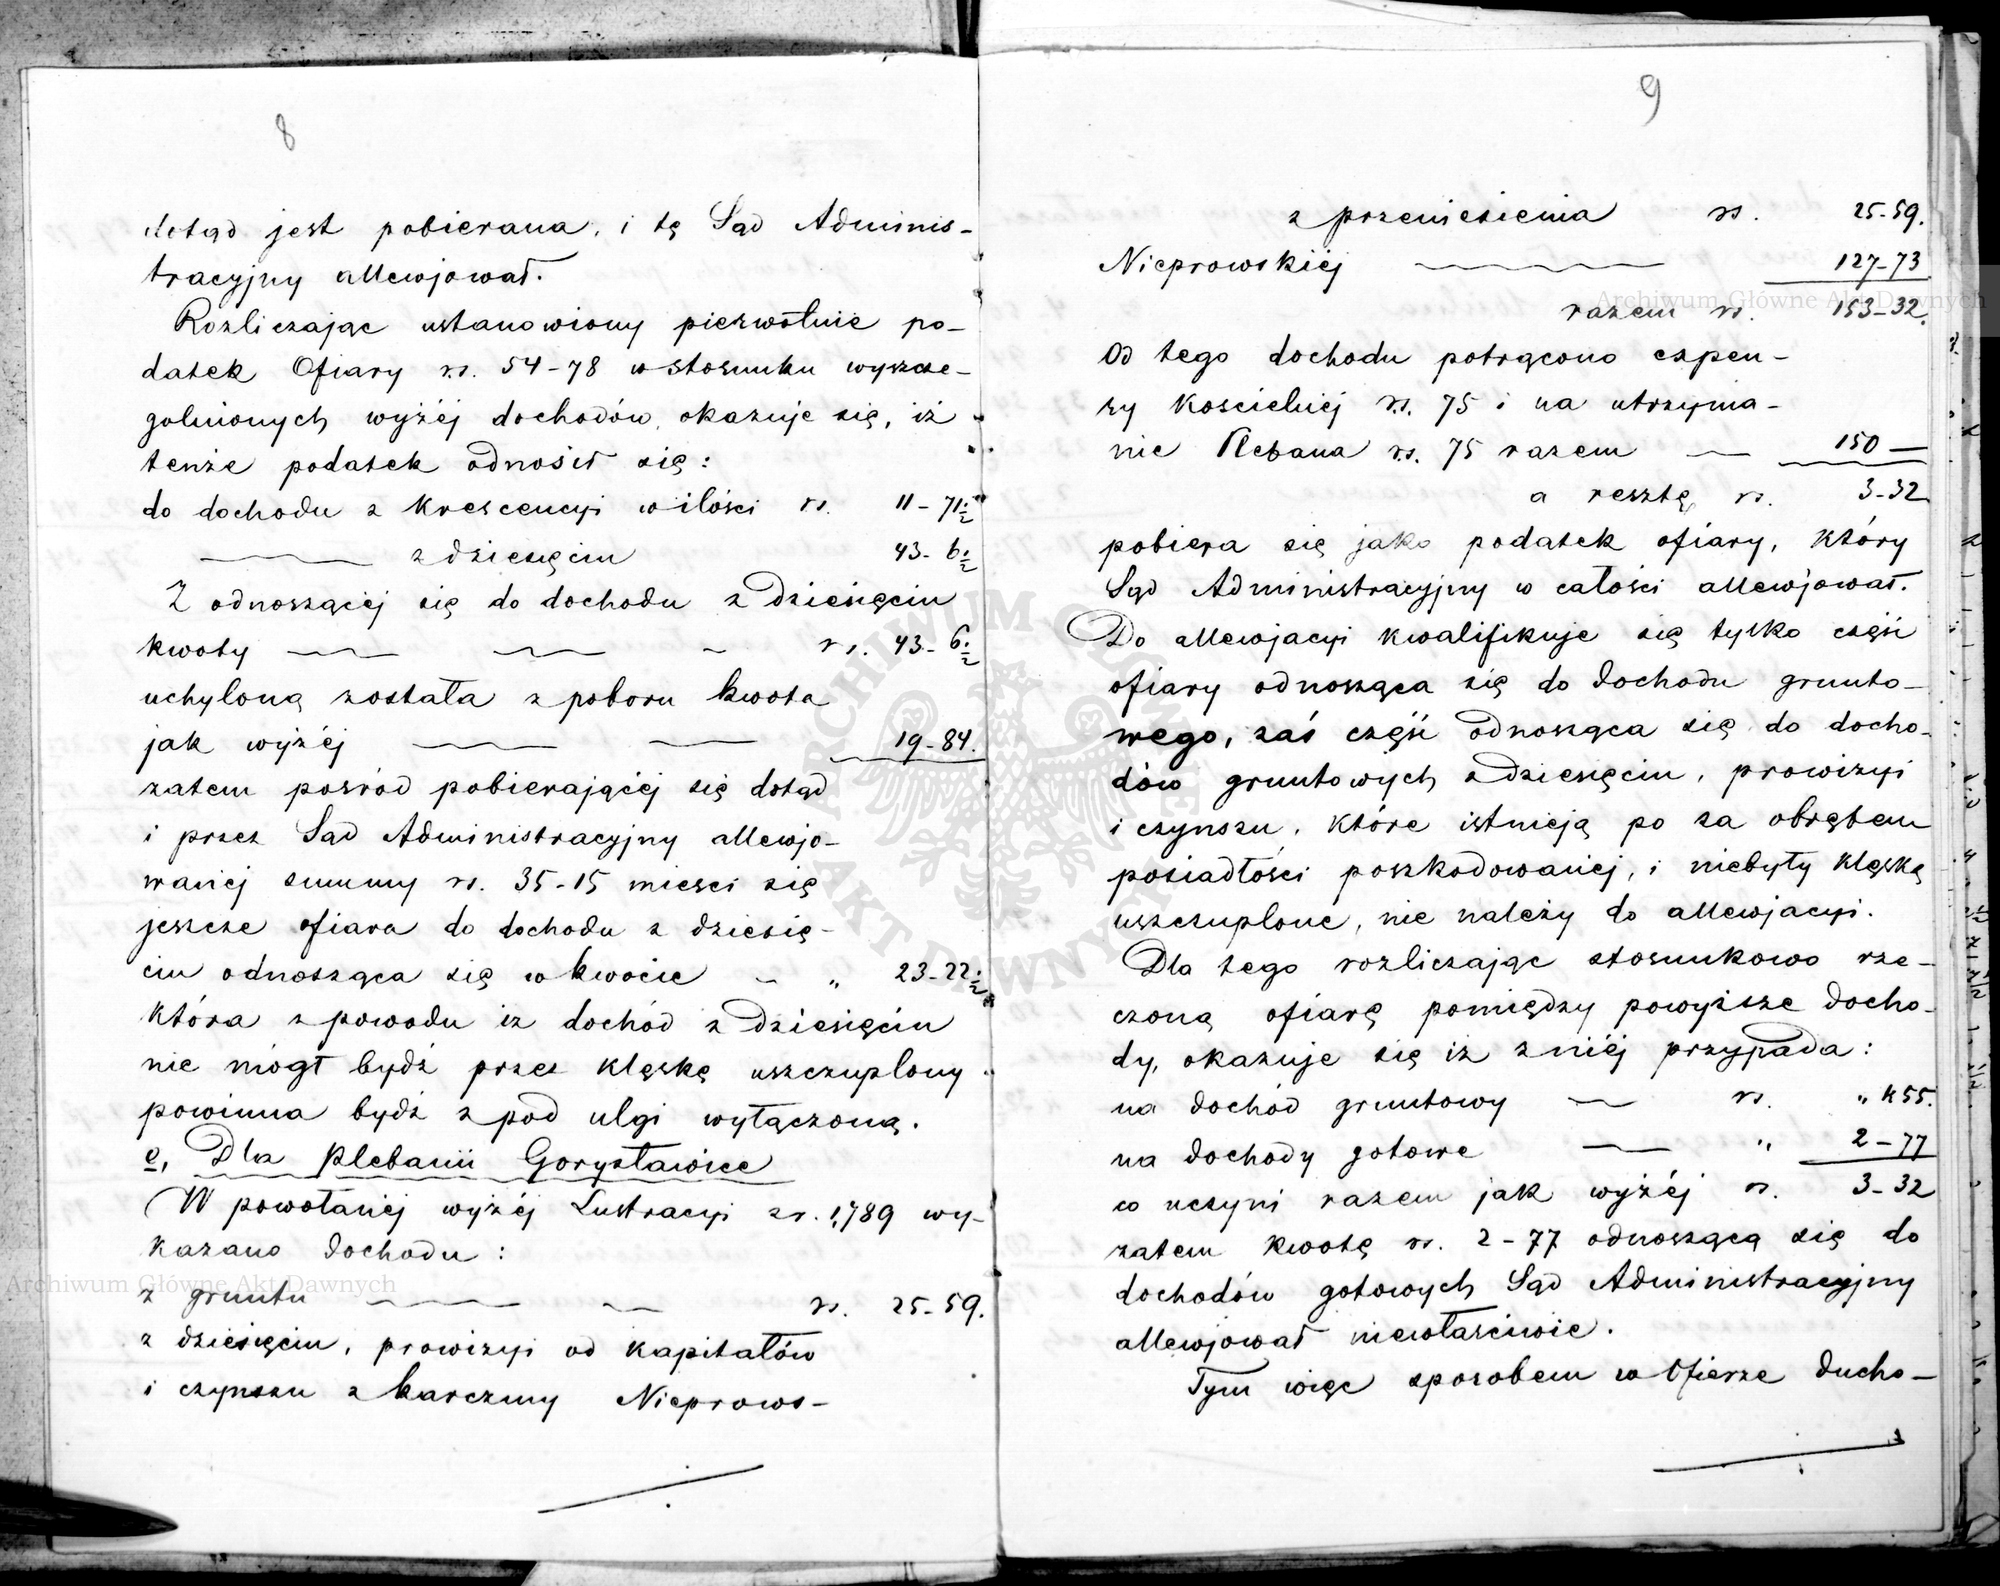 8
dotąd jest pobierana, i tę Sąd Adminis-
tracyjny allewjował.
Rozliczając ustanowiony pierwotnie po-
datek Ofiary rs. 54-78 w stosunku wyszcze-
gólnionych wyżéj dochodów, okazuje się, iż
tenże podatek odnosił się:
do dochodu z krescencyi w ilości rs. 11-71½
z dziesięcin 43-6½
Z odnoszącéj się do dochodu z Dziesięcin
kwoty rs. 43-6½
uchyloną została z poboru kwota
jak wyżéj 19-84.
zatem pośród pobierającéj się dotąd
i przez Sąd Administracyjny allewjo-
wanéj summy rs. 35-15 mieści się
jeszcze ofiara do dochodu z dziesię-
cin odnosząca się w kwocie " 23-22½
która z powodu iż dochód z Dziesięcin
nie mógł bydź przez klęskę uszczuplony
powinna bydź z pod ulgi wyłączoną.
e, Dla Plebanii Gorysławice
W powołanéj wyżéj Lustracyi z r. 1789 wy-
kazano dochodu:
z gruntu rs. 25-59.
z dziesięcin, prowizyi od kapitałów
i czynszu z karczmy Nieprows-
9
z przeniesienia rs. 25-59.
Nieprowskiéj 127-73
razem rs. 153-32.
Od tego dochodu potrącono expen-
sy kościelnéj rs. 75 i na utrzyma-
nie Plebana rs. 75 razem 150 —
a resztę rs. 3-32
pobiera się jako podatek ofiary, który
Sąd Administracyjny w całości allewjował.
Do allewjacyi kwalifikuje się tylko część
ofiary odnosząca się do dochodu grunto-
wego, zaś część odnosząca się do docho-
dów gruntowych z dziesięcin, prowizyi
i czynszu, które istnieją po za obrębem
posiadłości poszkodowanéj, i niebyły klęską
uszczuplone, nie należy do allewjacyi.
Dla tego rozliczając stosunkowo rze-
czoną ofiarę pomiędzy powyższe docho-
dy, okazuje się iż z niéj przypada:
na dochód gruntowy rs. " k 55.
na dochody gotowe " 2-77
co uczyni razem jak wyżéj rs. 3-32
zatem kwotę rs. 2-77 odnoszącą się do
dochodów gotowych Sąd Administracyjny
allewjował niewłaściwie.
Tym więc sposobem w Ofierze ducho-
Archiwum Główne Akt Dawnych
Archiwum Główne Akt Dawnych
ARCHIWUM GŁÓWNE AKT DAWNYCH